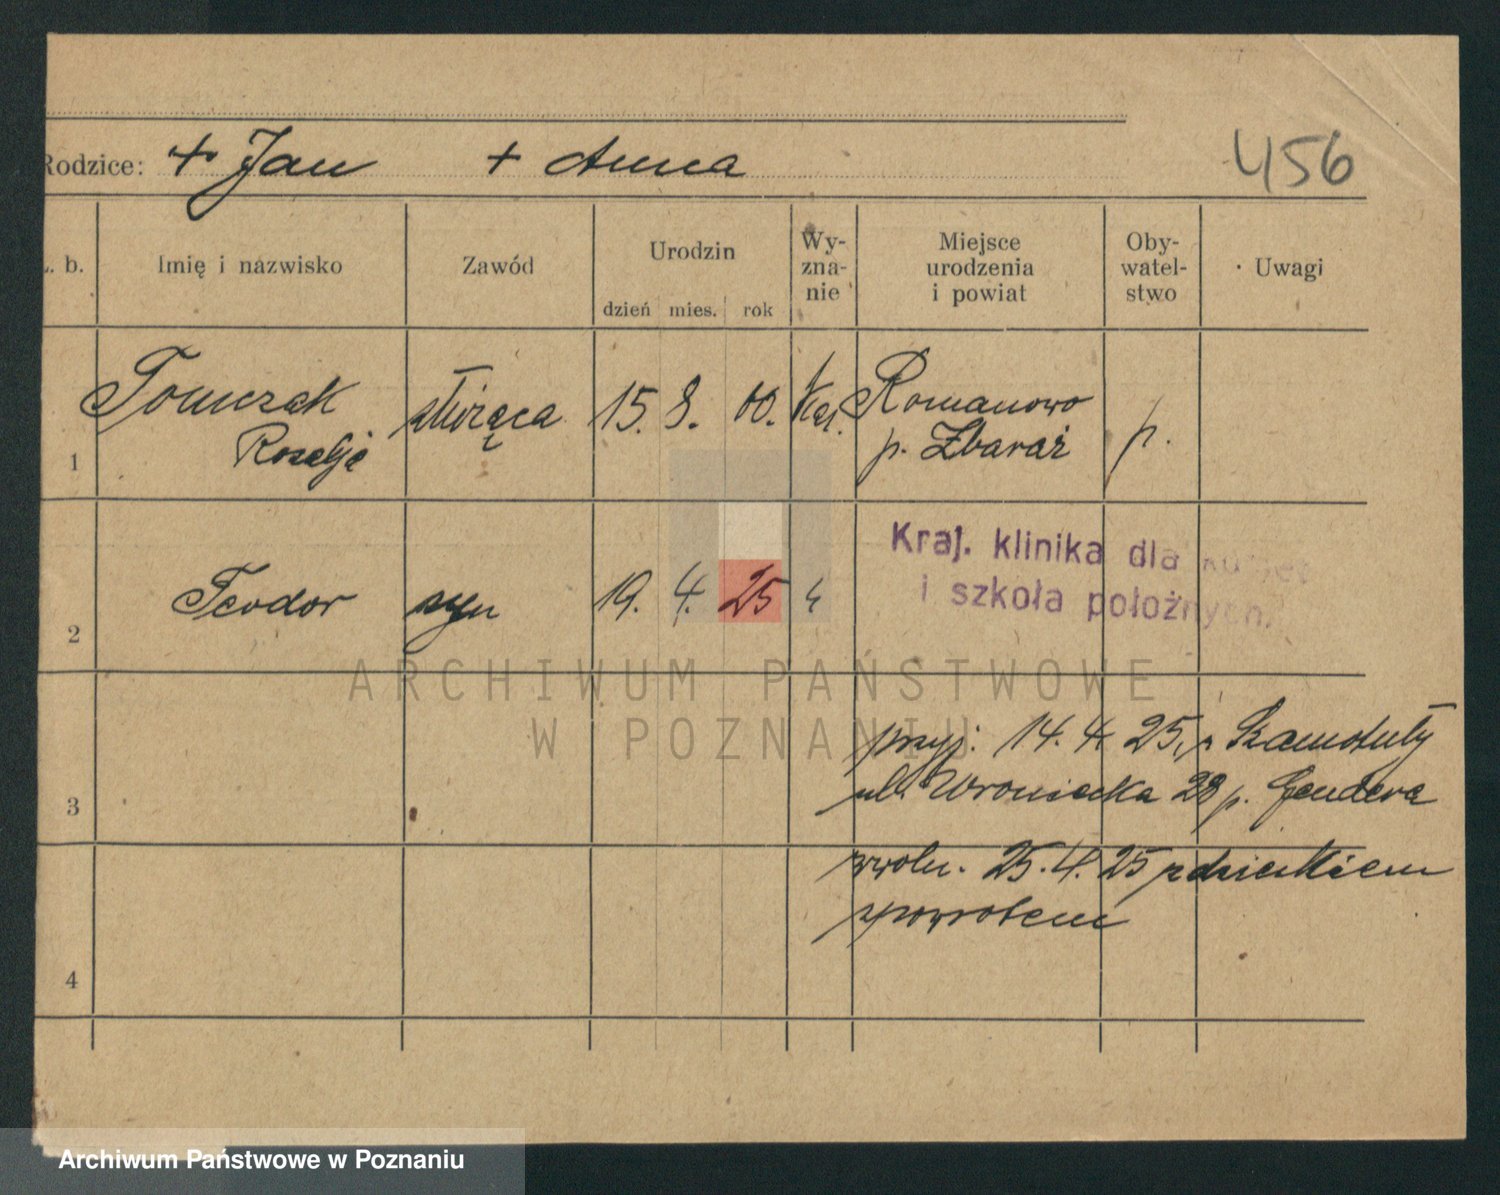 Rodzice: + Jan + Anna
456
L. b.
Imię i nazwisko
Zawód
Urodzin
dzień mies. rok
Wy-
zna-
nie
Miejsce
urodzenia
i powiat
Oby-
watel-
stwo
Uwagi
1
Tomczak
Rozalja
służąca
15. 8. 00.
Kat.
Romanowo
p. Zbaraż
p.
2
Teodor
syn
19. 4. 25
Kraj. klinika dla kobiet
i szkoła położnych.
ARCHIWUM PAŃSTWOWE
W POZNANIU
3
przyj. 14. 4. 25, z Szamotuły
ul. Wroniecka 28 p. Gendera
zwoln. 25. 4. 25 z dzieckiem
zpowrotem
4
Archiwum Państwowe w Poznaniu